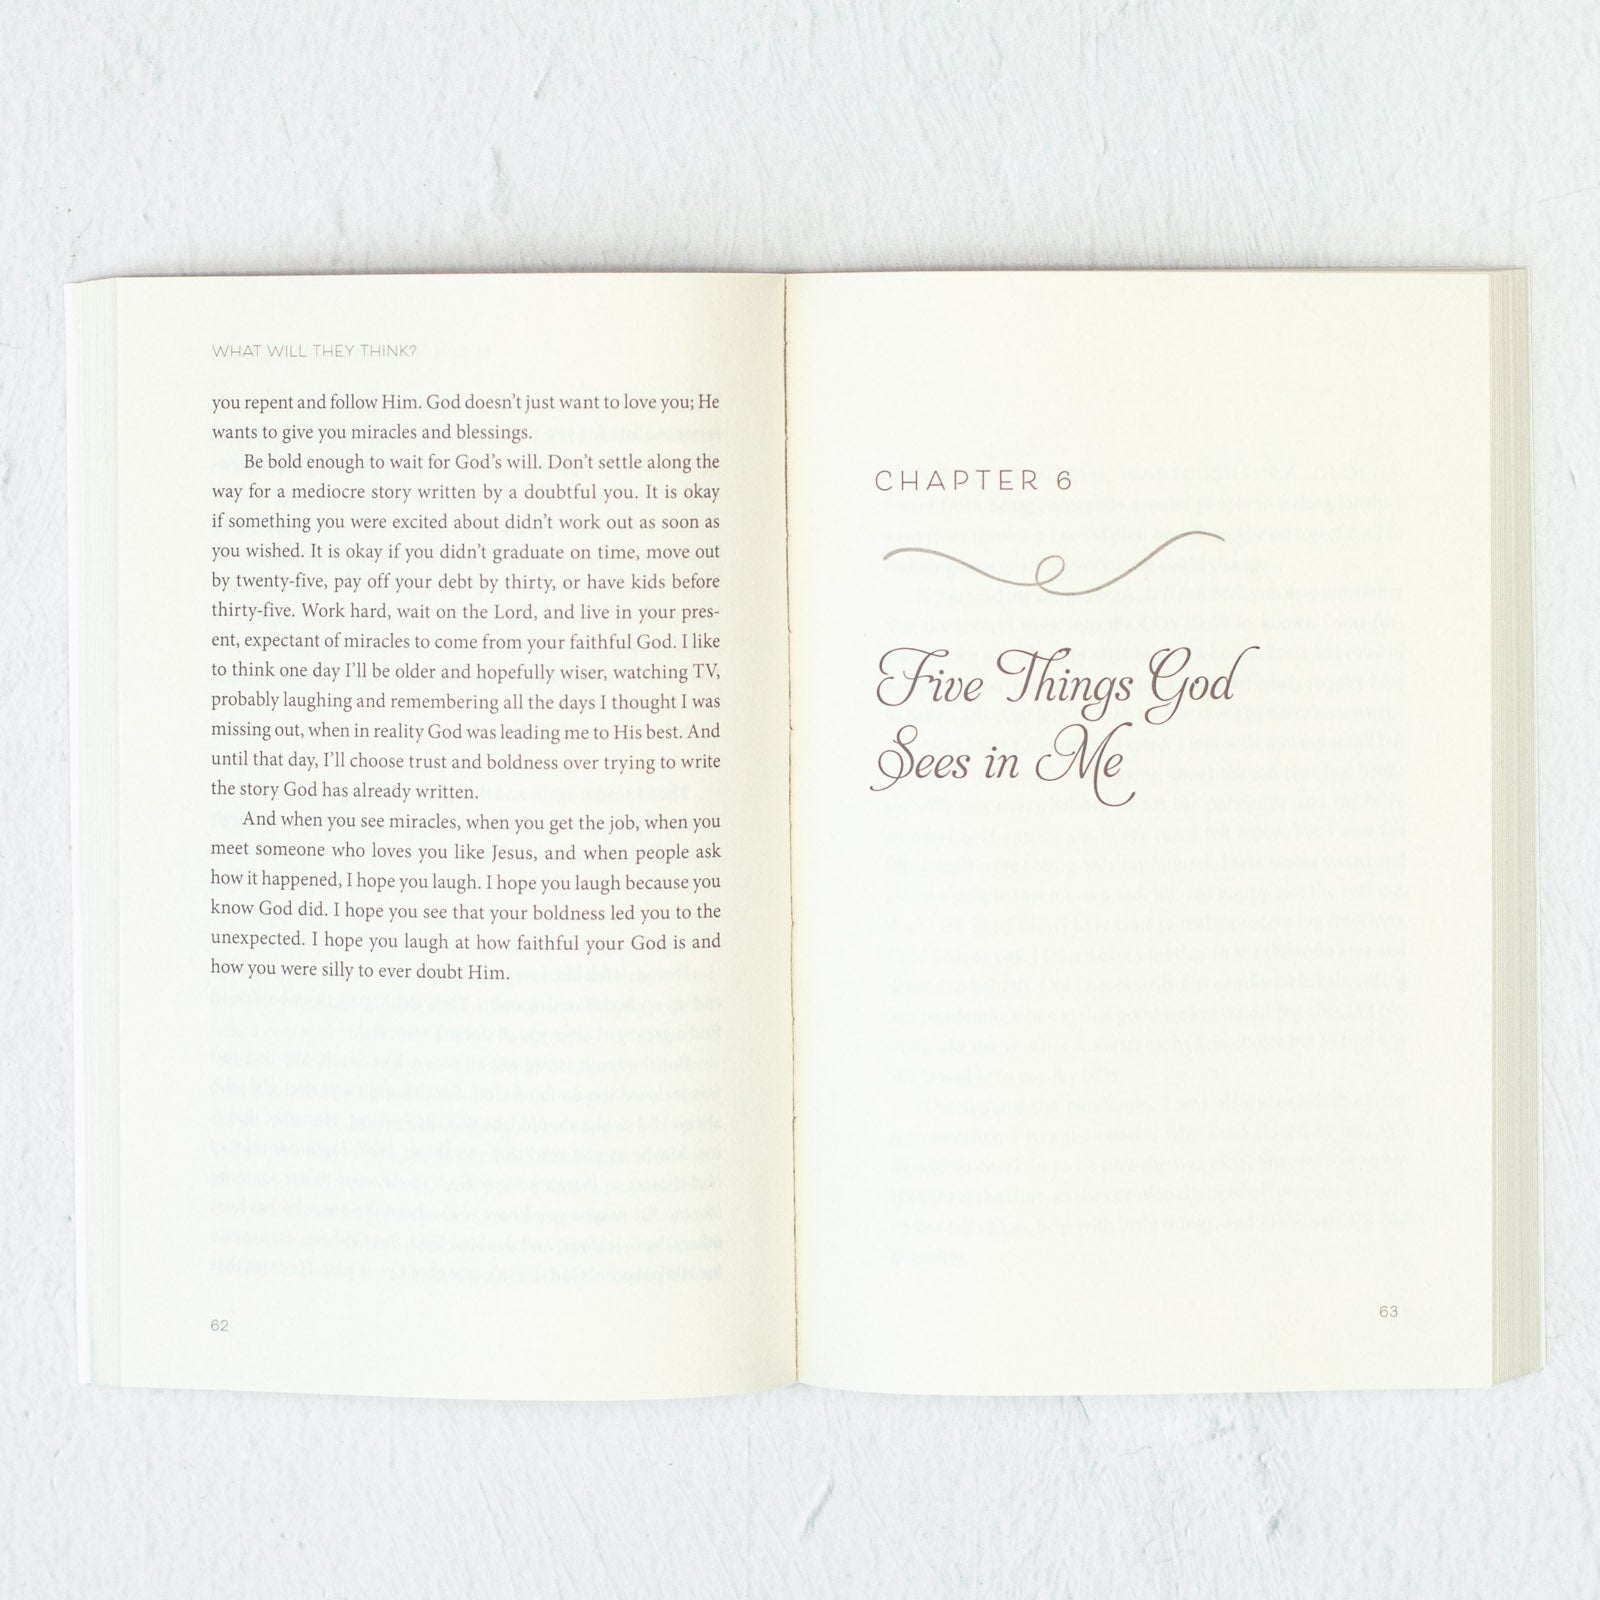 WHAT WILL THEY THINK?
you repent and follow Him. God doesn't just want to love you; He
wants to give you miracles and blessings.
Be bold enough to wait for God's will. Don't settle along the
way for a mediocre story written by a doubtful you. It is okay
if something you were excited about didn't work out as soon as
you wished. It is okay if you didn't graduate on time, move out
by twenty-five, pay off your debt by thirty, or have kids before
thirty-five. Work hard, wait on the Lord, and live in your pres-
ent, expectant of miracles to come from your faithful God. I like
to think one day I'll be older and hopefully wiser, watching TV,
probably laughing and remembering all the days I thought I was
missing out, when in reality God was leading me to His best. And
until that day, I'll choose trust and boldness over trying to write
the story God has already written.
And when you see miracles, when you get the job, when you
meet someone who loves you like Jesus, and when people ask
how it happened, I hope you laugh. I hope you laugh because you
know God did. I hope you see that your boldness led you to the
unexpected. I hope you laugh at how faithful your God is and
how you were silly to ever doubt Him.
62
CHAPTER 6
Five Things God
Sees in Me
63